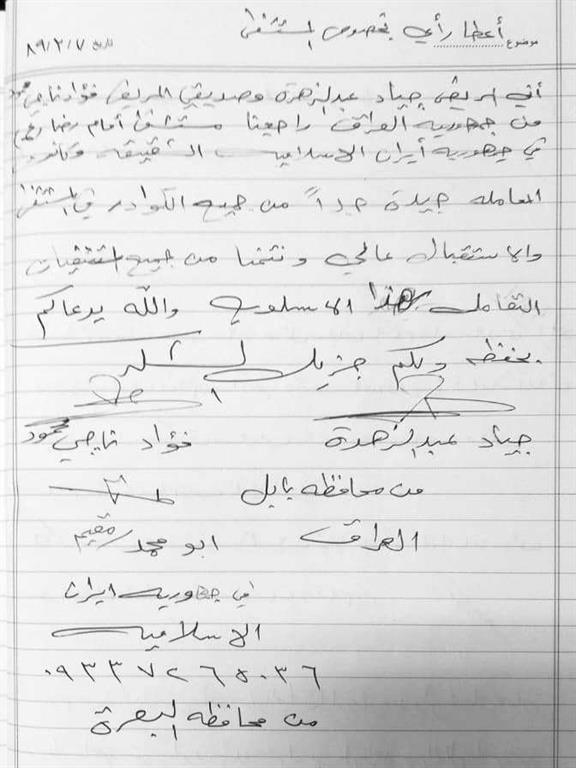 موضوع أعطاء رأي بخصوص المستشفى تاريخ ٨٩/٢/٧
أني المريض جياد عبد الزهرة وصديقي المريض فؤاد ناجي محمود
من جمهورية العراق راجعنا مستشفى أمام رضا
في جمهورية أيران الاسلامية الشقيقة وكانت
المعاملة جيدة جداً من جميع الكوادر في المستشفى
والاستقبال عالي ونتمنا من جميع المستشفيات
التعامل بهذا الاسلوب والله يرعاكم
بحفظه ولكم جزيل الشكر
جياد عبد الزهرة فؤاد ناجي محمود
من محافظة بابل
العراق ابو محمد مقيم
في جمهورية ايران
الاسلامية
٠٩٣٣٧٢٦٥٠٣٦
من محافظة البصرة